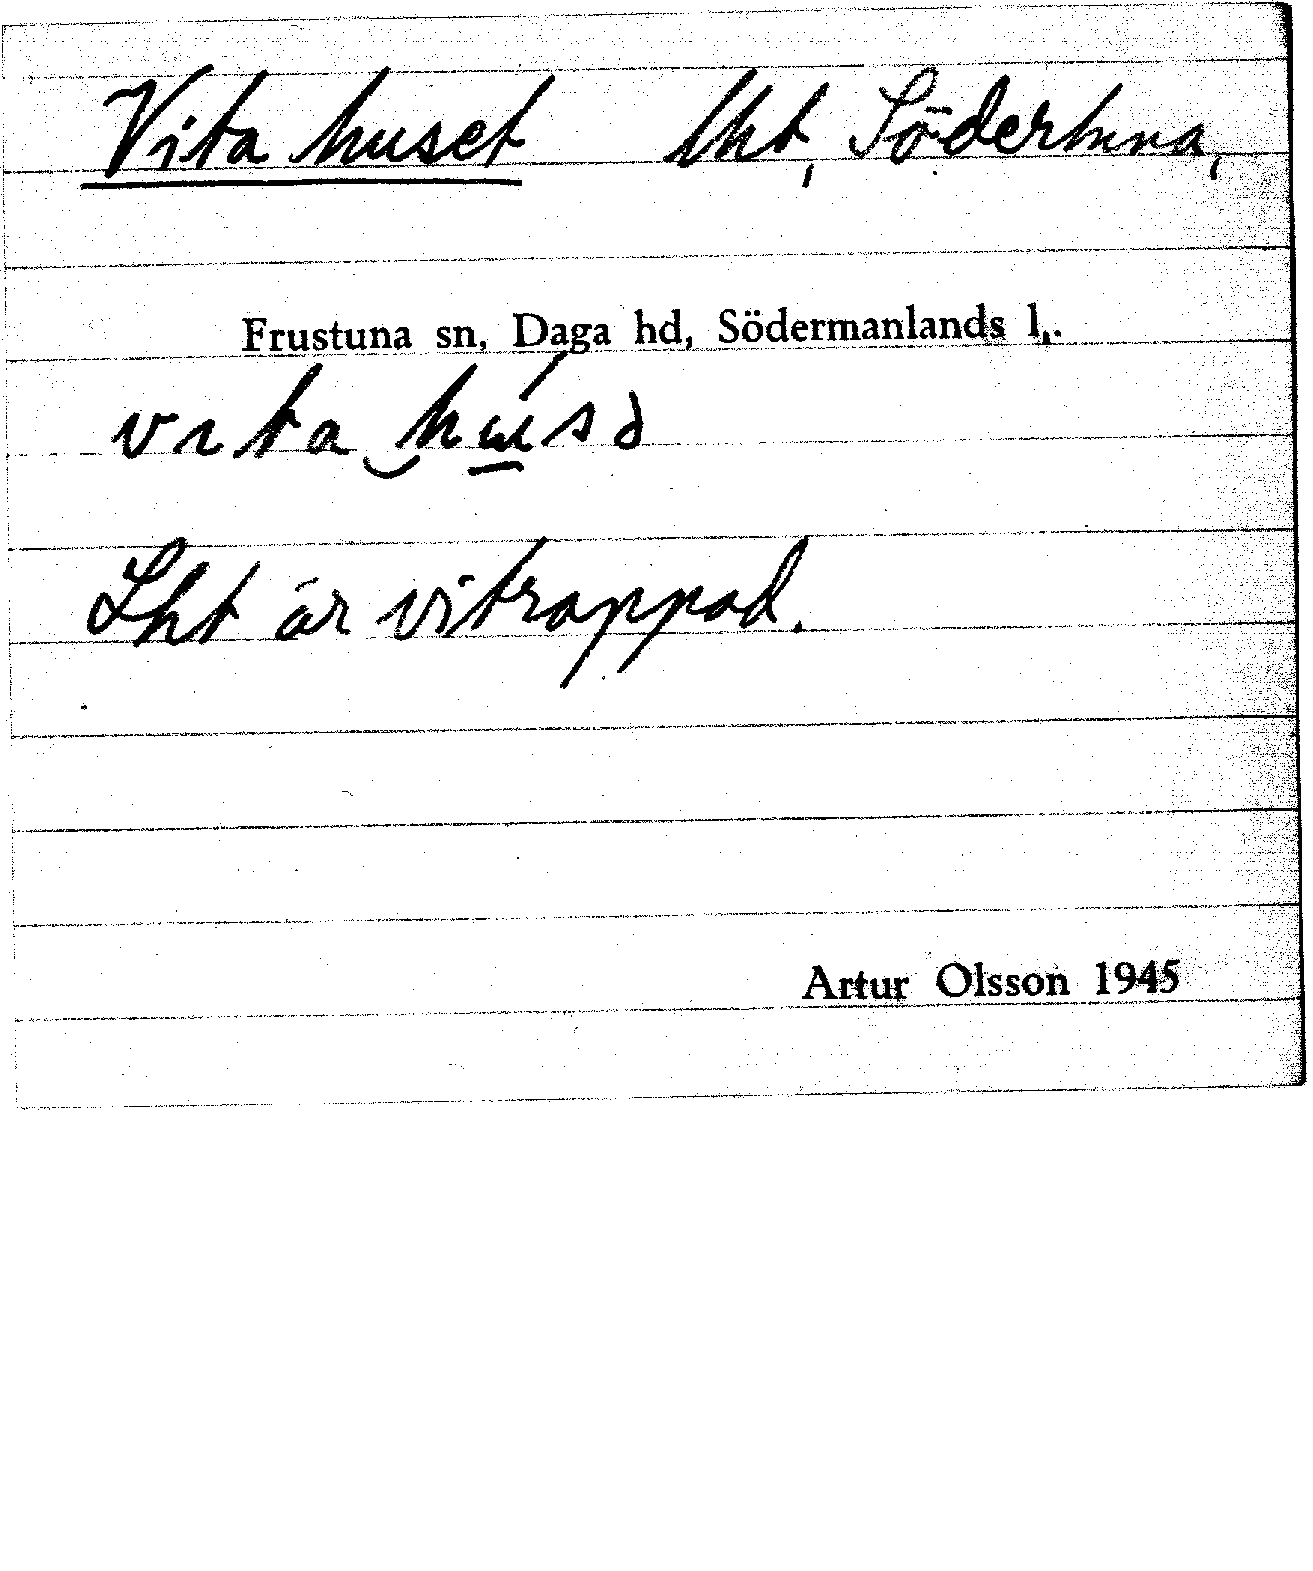 Vita huset lht, Södertuna,
Frustuna sn, Daga hd, Södermanlands l,.
vita húsə
Lht är vitrappad.
Artur Olsson 1945